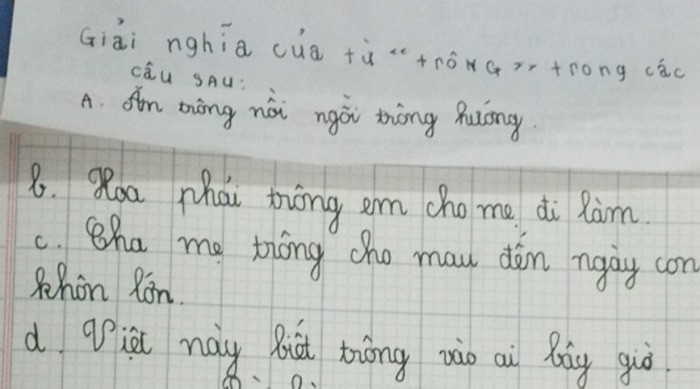 Giải nghĩa của từ "trông" trong các
câu sau:
A. Ăn trông nồi ngồi trông hướng.
b. Hoa phải trông em cho mẹ đi làm.
c. Cha mẹ trông cho mau đến ngày con
khôn lớn.
d. Việc này biết trông vào ai bây giờ.